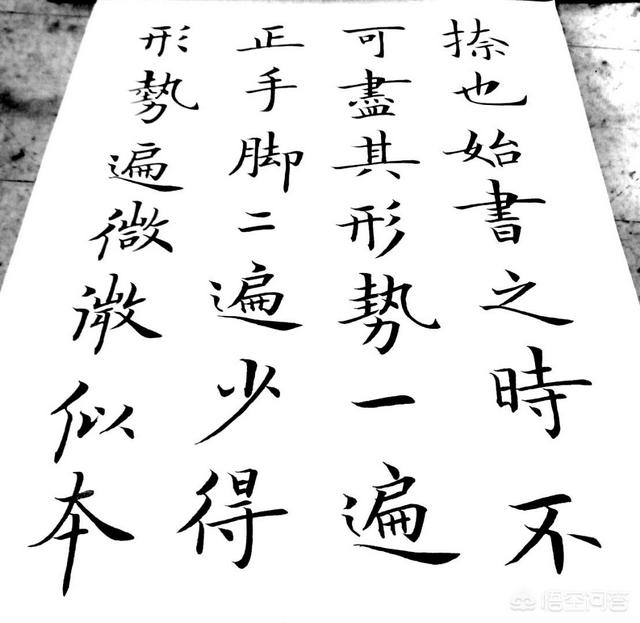 捺也始書之時不
可盡其形勢一遍
正手脚二遍少得
形勢遍微微似本
悟空问答